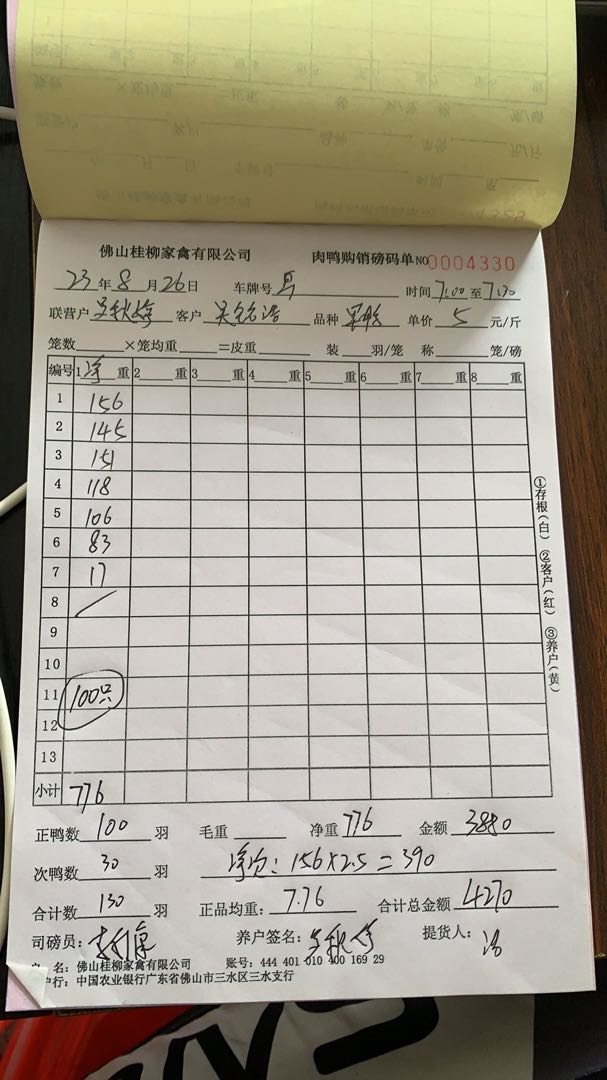 佛山桂柳家禽有限公司 肉鸭购销磅码单 NO 0004330
23年8月26日 车牌号 时间7:00至7:30
联营户 客户 吴铭浩 品种 单价 5 元/斤
笼数 ×笼均重 =皮重 装 羽/笼 称 笼/磅
编号 1净重 2 重 3 重 4 重 5 重 6 重 7 重 8 重
1 156
2 145
3 151
4 118
5 106
6 83
7 17
8 /
9
10
11 100只
12
13
小计 776
正鸭数 100 羽 毛重 净重 776 金额 3880
次鸭数 30 羽 净次:156×2.5=390
合计数 130 羽 正品均重: 7.76 合计总金额 4270
司磅员: 养户签名: 提货人: 浩
名:佛山桂柳家禽有限公司 账号:444 401 010 400 169 29
户行:中国农业银行广东省佛山市三水区三水支行
①存根(白) ②客户(红) ③养户(黄)